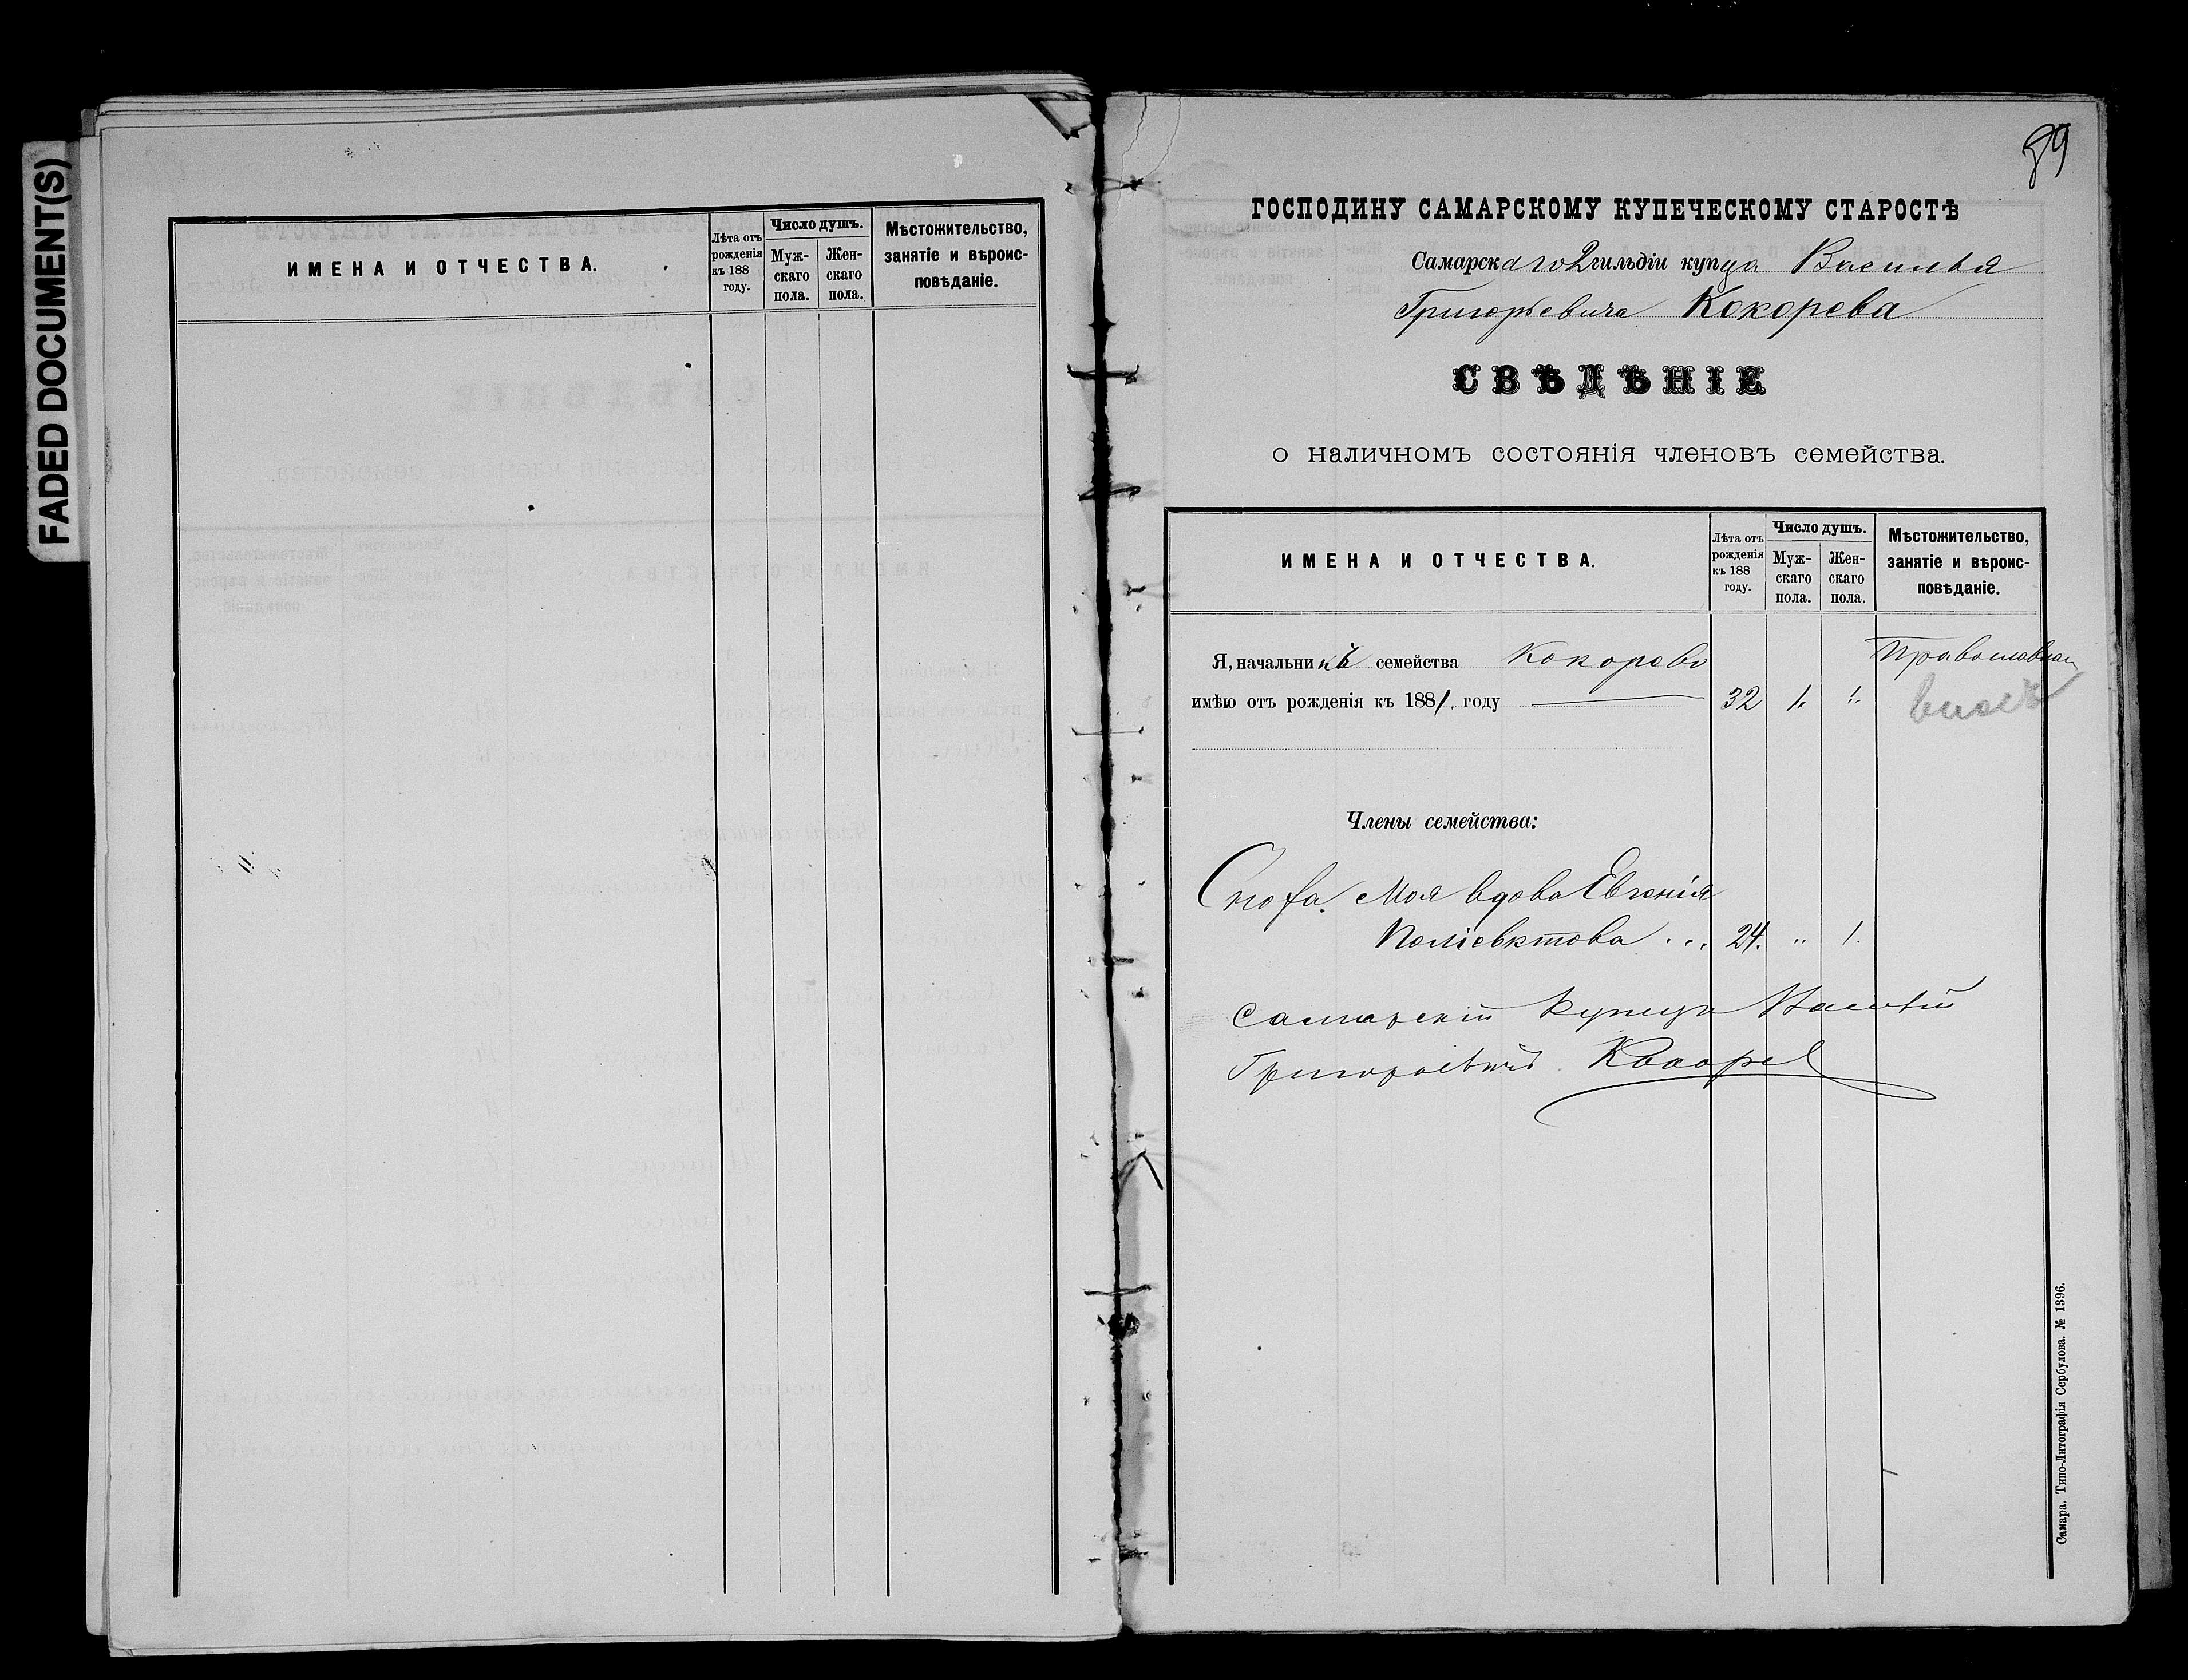 FADED DOCUMENT(S)
ИМЕНА И ОТЧЕСТВА.
Лѣта отъ рожденія къ 188 году.
Число душъ.
Муж-скаго пола.
Жен-скаго пола.
Мѣстожительство, занятіе и вѣроис-повѣданіе.
89
ГОСПОДИНУ САМАРСКОМУ КУПЕЧЕСКОМУ СТАРОСТѢ
Самарскаго 2 гильдіи купца Василья
Григорьевича Кокорева
СВѢДѢНІЕ
о наличномъ состоянія членовъ семейства.
ИМЕНА И ОТЧЕСТВА.
Лѣта отъ рожденія къ 188 году.
Число душъ.
Муж-скаго пола.
Жен-скаго пола.
Мѣстожительство, занятіе и вѣроис-повѣданіе.
Я, начальникъ семейства Кокоревъ
имѣю отъ рожденія къ 1881. году 32 1. "
Члены семейства:
Сноха. Моя вдова Евгенія
Поліевктова . . . 24. " 1.
Самарскій купецъ Василій
Григорьевичъ Кокорев
Самара. Типо-Литографія Сербулова. № 1396.